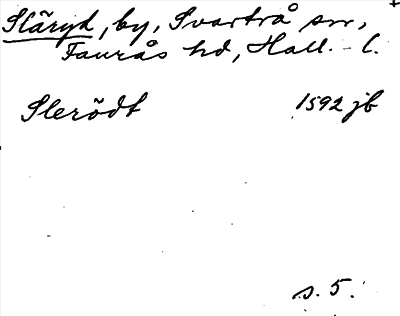 Släryd, by, Svartrå sn,
Faurås hd, Hall. l.
Slerödt 1592 jb
s. 5.